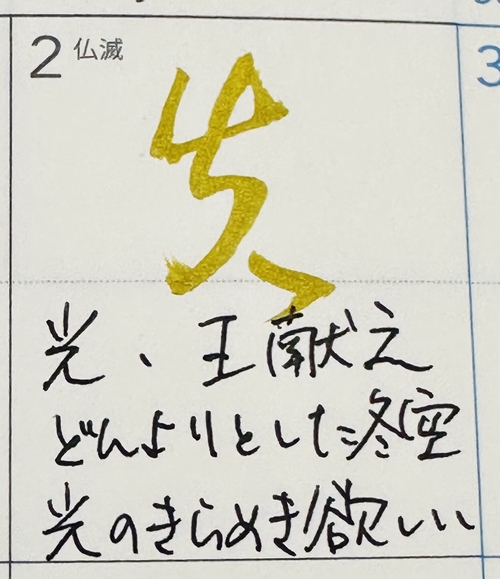 2 仏滅
3
光、王献之
どんよりとした冬空
光のきらめき欲しい